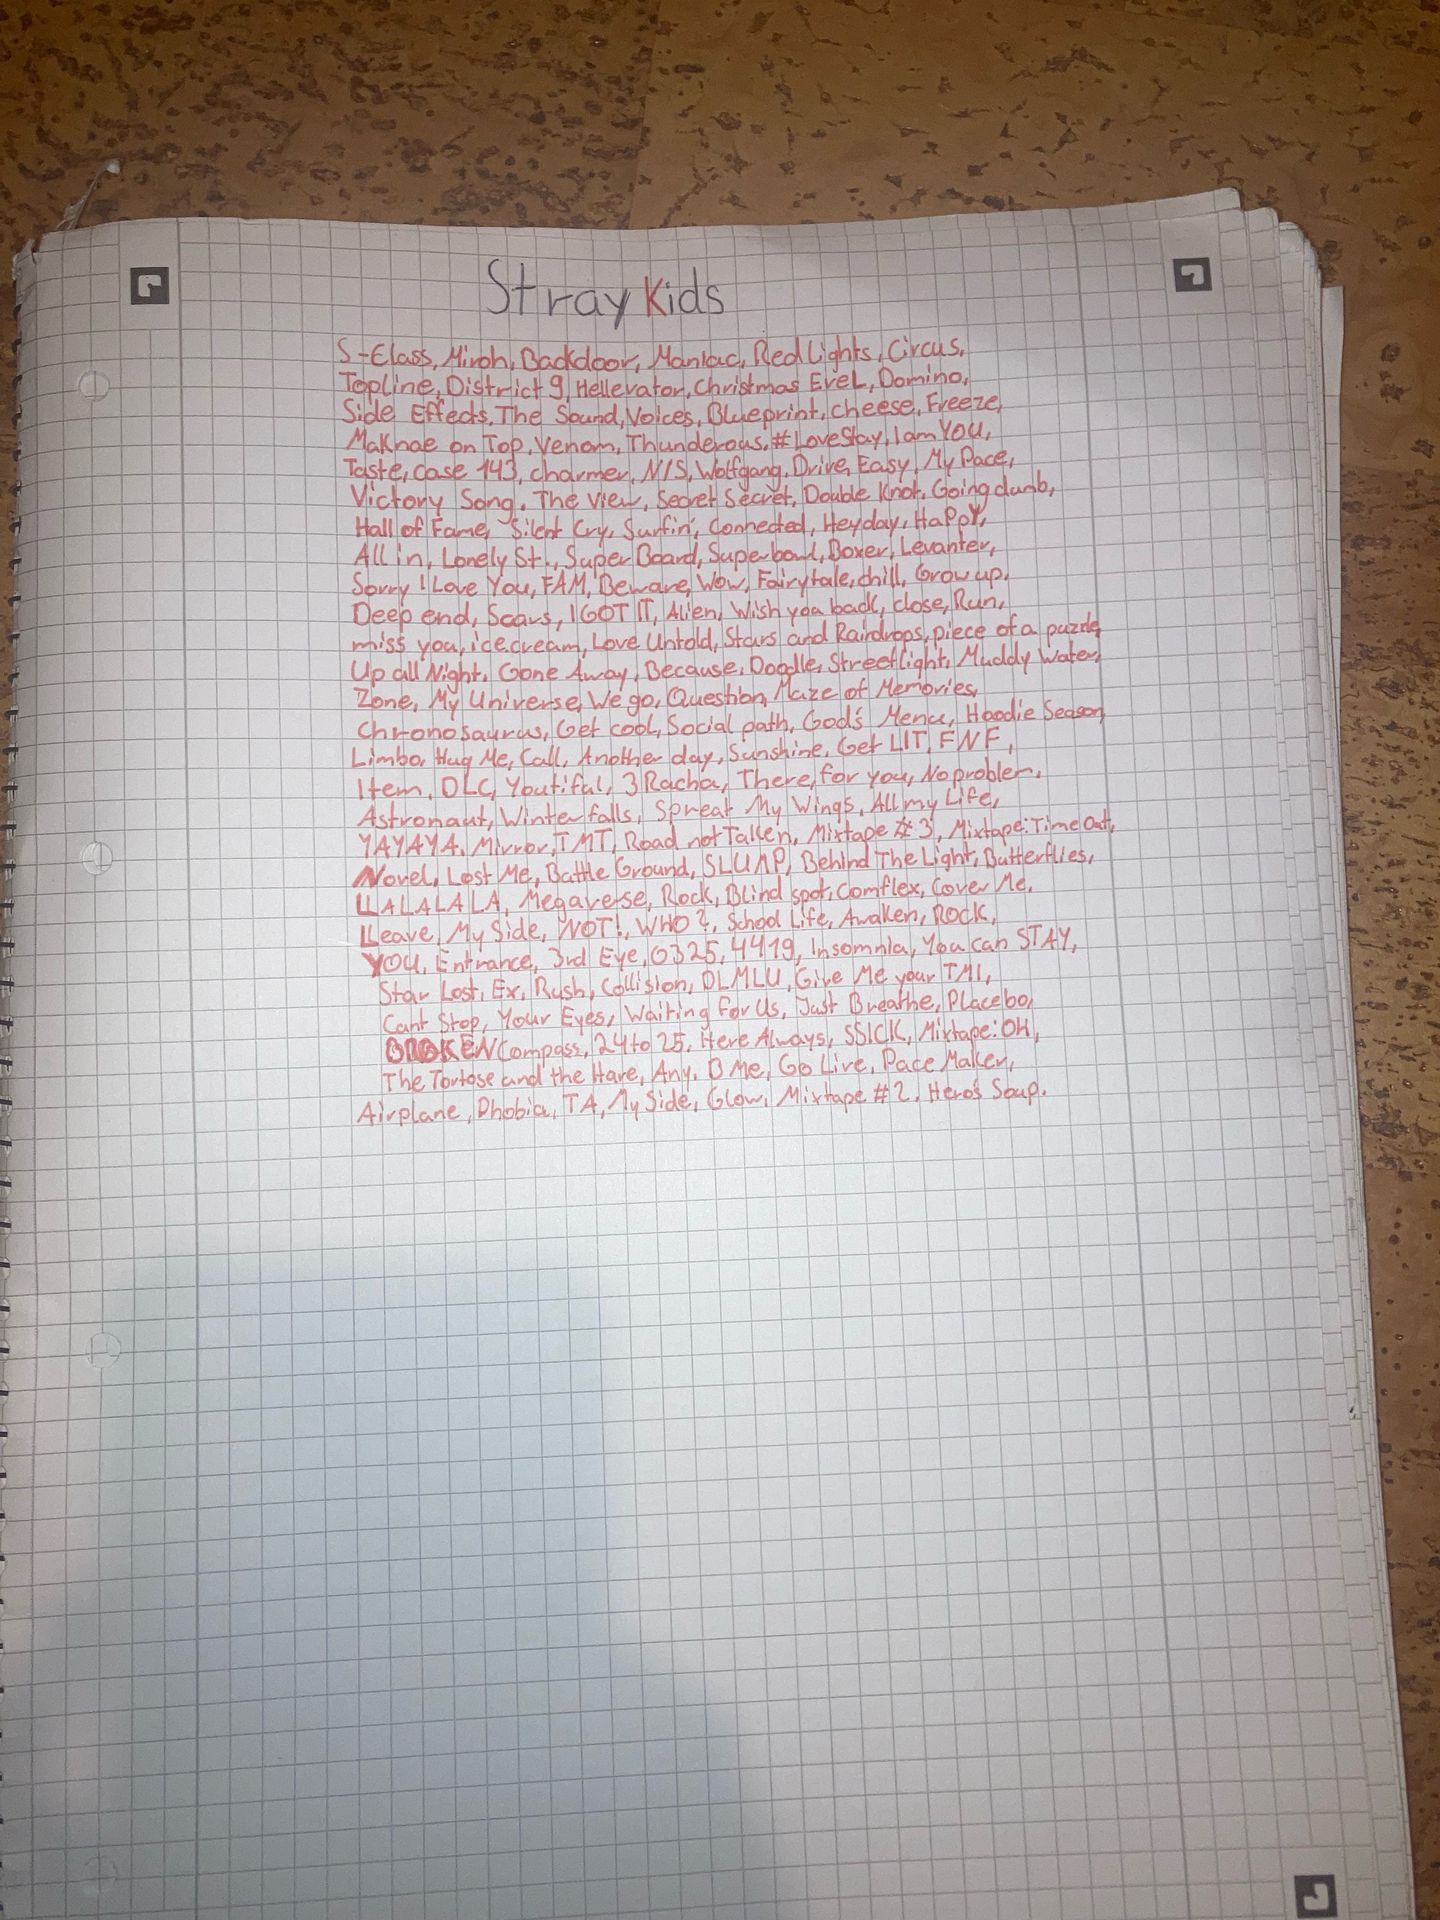 Stray Kids
S-Class, Miroh, Backdoor, Maniac, Red Lights, Circus,
Topline, District 9, Hellevator, Christmas EveL, Domino,
Side Effects, The Sound, Voices, Blueprint, cheese, Freeze,
Maknae on Top, Venom, Thunderous, #LoveStay, I am YOU,
Taste, case 143, charmer, N/S, Wolfgang, Drive, Easy, My Pace,
Victory Song, The View, Secret Secret, Double Knot, Going dumb,
Hall of Fame, Silent Cry, Surfin', Connected, Heyday, HaPPY,
All in, Lonely St., Super Board, Superbowl, Boxer, Levanter,
Sorry I Love You, FAM, Beware, Wow, Fairytale, chill, Grow up,
Deep end, Scars, I GOT IT, Alien, Wish you back, close, Run,
miss you, ice.cream, Love Untold, Stars and Raindrops, piece of a puzzle,
Up all Night, Gone Away, Because, Doodle, Streetlight, Muddy Water,
Zone, My Universe, We go, Question, Maze of Memories,
Chronosaurus, Get cool, Social path, God's Menu, Hoodie Season,
Limbo, Hug Me, Call, Another day, Sunshine, Get LIT, FNF,
Item, DLC, Youtiful, 3 Racha, There, for you, No problem,
Astronaut, Winter falls, Spreat My Wings, All my Life,
YAYAYA, Mirror, TMT, Road not Taken, Mixtape #3, Mixtape: Time Out,
Novel, Lost Me, Battle Ground, SLUMP, Behind The Light, Butterflies,
LALALALA, Megaverse, Rock, Blind spot, Comflex, Cover Me,
Leave, My Side, NOT!, WHO?, School Life, Awaken, ROCK,
YOU, Entrance, 3rd Eye, 0325, 4419, Insomnia, You can STAY,
Star Lost, Ex, Rush, Collision, DLMLU, Give Me your TMI,
Cant Stop, Your Eyes, Waiting For Us, Just Breathe, Placebo,
BROKEN Compass, 24 to 25, Here Always, SSICK, Mixtape: OH,
The Tortose and the Hare, Any, B Me, Go Live, Pace Maker,
Airplane, Phobia, TA, My Side, Glow, Mixtape #2, Hero's Soup.